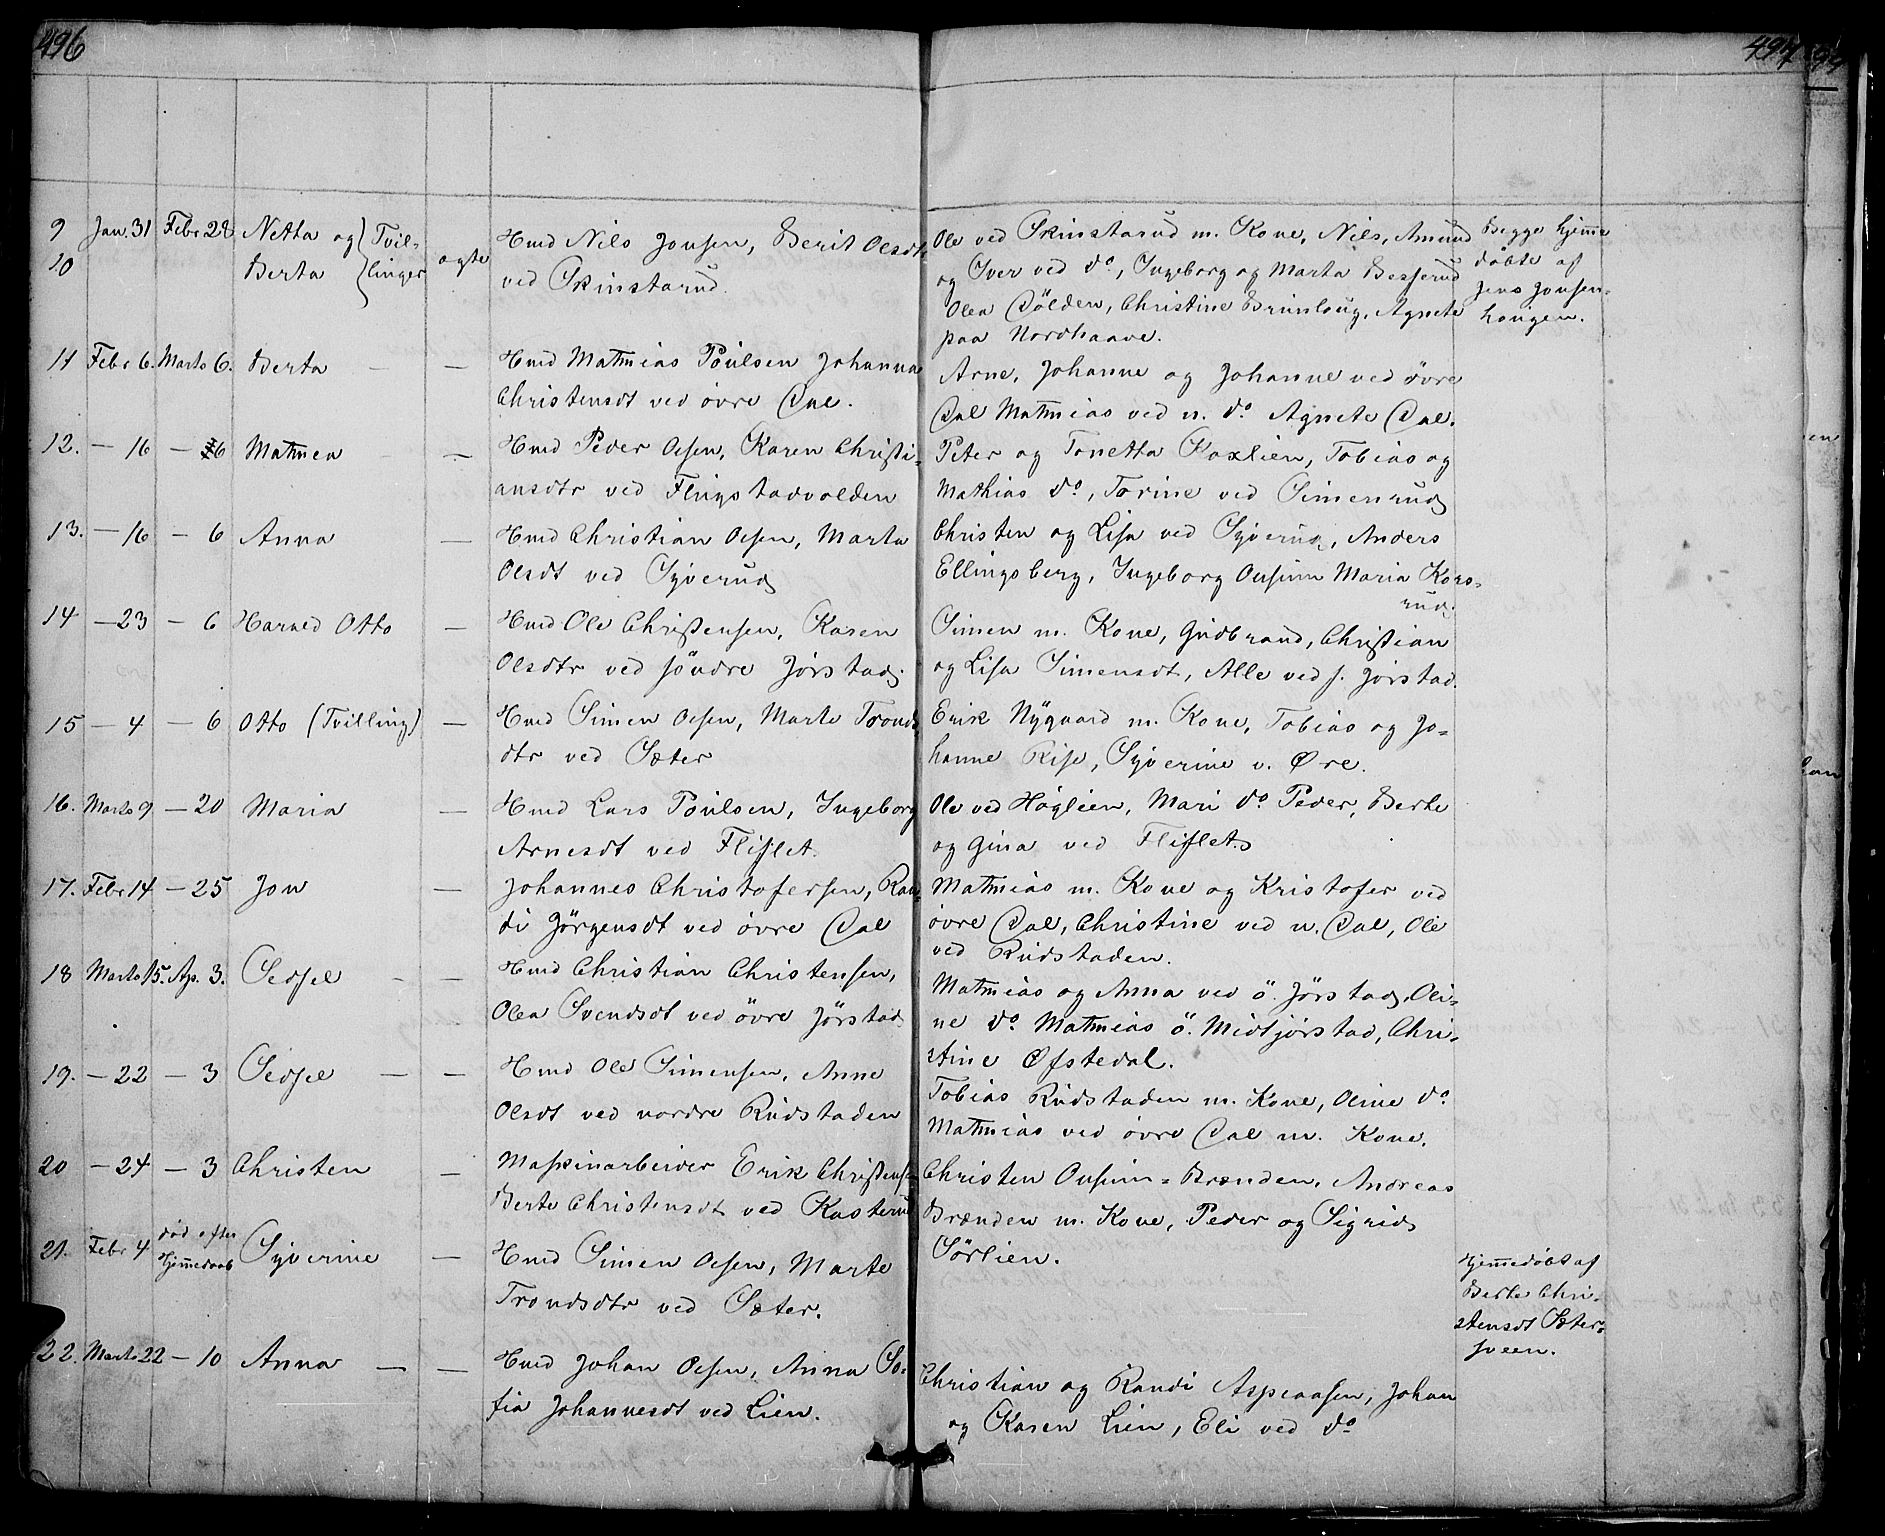 496
497
9 Jan. 31 Febr 28 Netta og Tvil- ægte Hmd Nils Jonsen, Berit Olsdt. Ole ved Skinstarud m. Kone, Nils, Amund Begge hjemme
10 Berta linger ved Skinstarud. og Iver ved do, Ingeborg og Marta Besserud døbte af
Olea Dölden, Christine Brunlaug, Agnete Jens Jonsen-
paa Nordhaave. haugen.
11 Febr 6. Marts 6. Berta — — Hmd Mathias Poulsen Johanna Arne, Johanne og Johanne ved övre
Christensdt ved övre Dal. Dal Mathias ved n. do Agnete Dal.
12. — 16 — 6 Mathea — Hmd Peder Olsen, Karen Christi- Peter og Tonetta Koxlien, Tobias og
ansdtr ved Flugstadvolden Mathias do, Torine ved Simenrud
13. — 16 — 6 Anna — Hmd Christian Olsen, Marta Christen og Lisa ved Syverud, Anders
Olsdt ved Syverud Ellingsberg, Ingeborg Onsum Maria Kors-
rud.
14 — 23 — 6 Harved Otto — Hmd Ole Christensen, Karen Simen m. Kone, Gudbrand, Christian
Olsdtr ved söndre Jörstad. og Lisa Simensdt, Alle ved s. Jörstad.
15 — 4 — 6 Otto (Tvilling) — Hmd Simen Olsen, Marte Tronds Erik Nygaard m. Kone, Tobias og Jo-
dtr ved Sæter hanne Rise, Syverine v. Øre.
16. Marts 9 — 20 Maria — Hmd Lars Poulsen, Ingeborg Ole ved Höglien, Mari do Peder, Berte
Arnesdt ved Fliflet. og Gina ved Fliflet
17. Febr 14 — 25 Jon — Johannes Christofersen, Ran- Mathias m. Kone og Kristofer ved
di Jörgensdt ved övre Dal övre Dal, Christine ved n. Dal, Ole
ved Rudstaden.
18 Marts 15. Ap. 3. Sedsel — — Hmd Christian Christensen, Mathias og Anna ved ö. Jörstad, Oli-
Olea Svendsdt ved övre Jörstad ne do Mathias ö. Midtjörstad, Chri-
stine Øfstedal.
19. — 22 — 3 Sedsel — — Hmd Ole Simensen, Anne Tobias Rudstaden m. Kone, Oline do
Olsdt ved nordre Rudstaden Mathias ved övre Dal m. Kone.
20 — 24 — 3 Christen — Maskinarbeider Erik Christensen Christen Onsum-Brænden, Andreas
Berte Christensdt ved Kasterud Brænden m. Kone, Peder og Sigrid
Sörlien.
21. Febr 4 död efter Hjemmedaab Syverine — Hmd Simen Olsen, Marte Hjemmedöbt af
Trondsdtr ved Sæter. Berte Chri-
stensdt Sæter-
sveen.
22. Marts 22 — 10 Anna — — Hmd Johan Olsen, Anna So- Christian og Randi Aspeaasen, Johan
fia Johannesdt ved Lien. og Karen Lien, Eli ved do